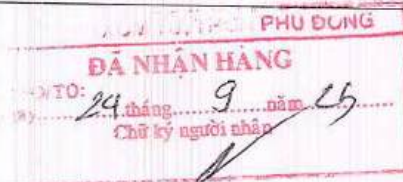 PHU DONG
ĐÃ NHẬN HÀNG
TO:
24 tháng 9 năm 25
Chữ ký người nhận